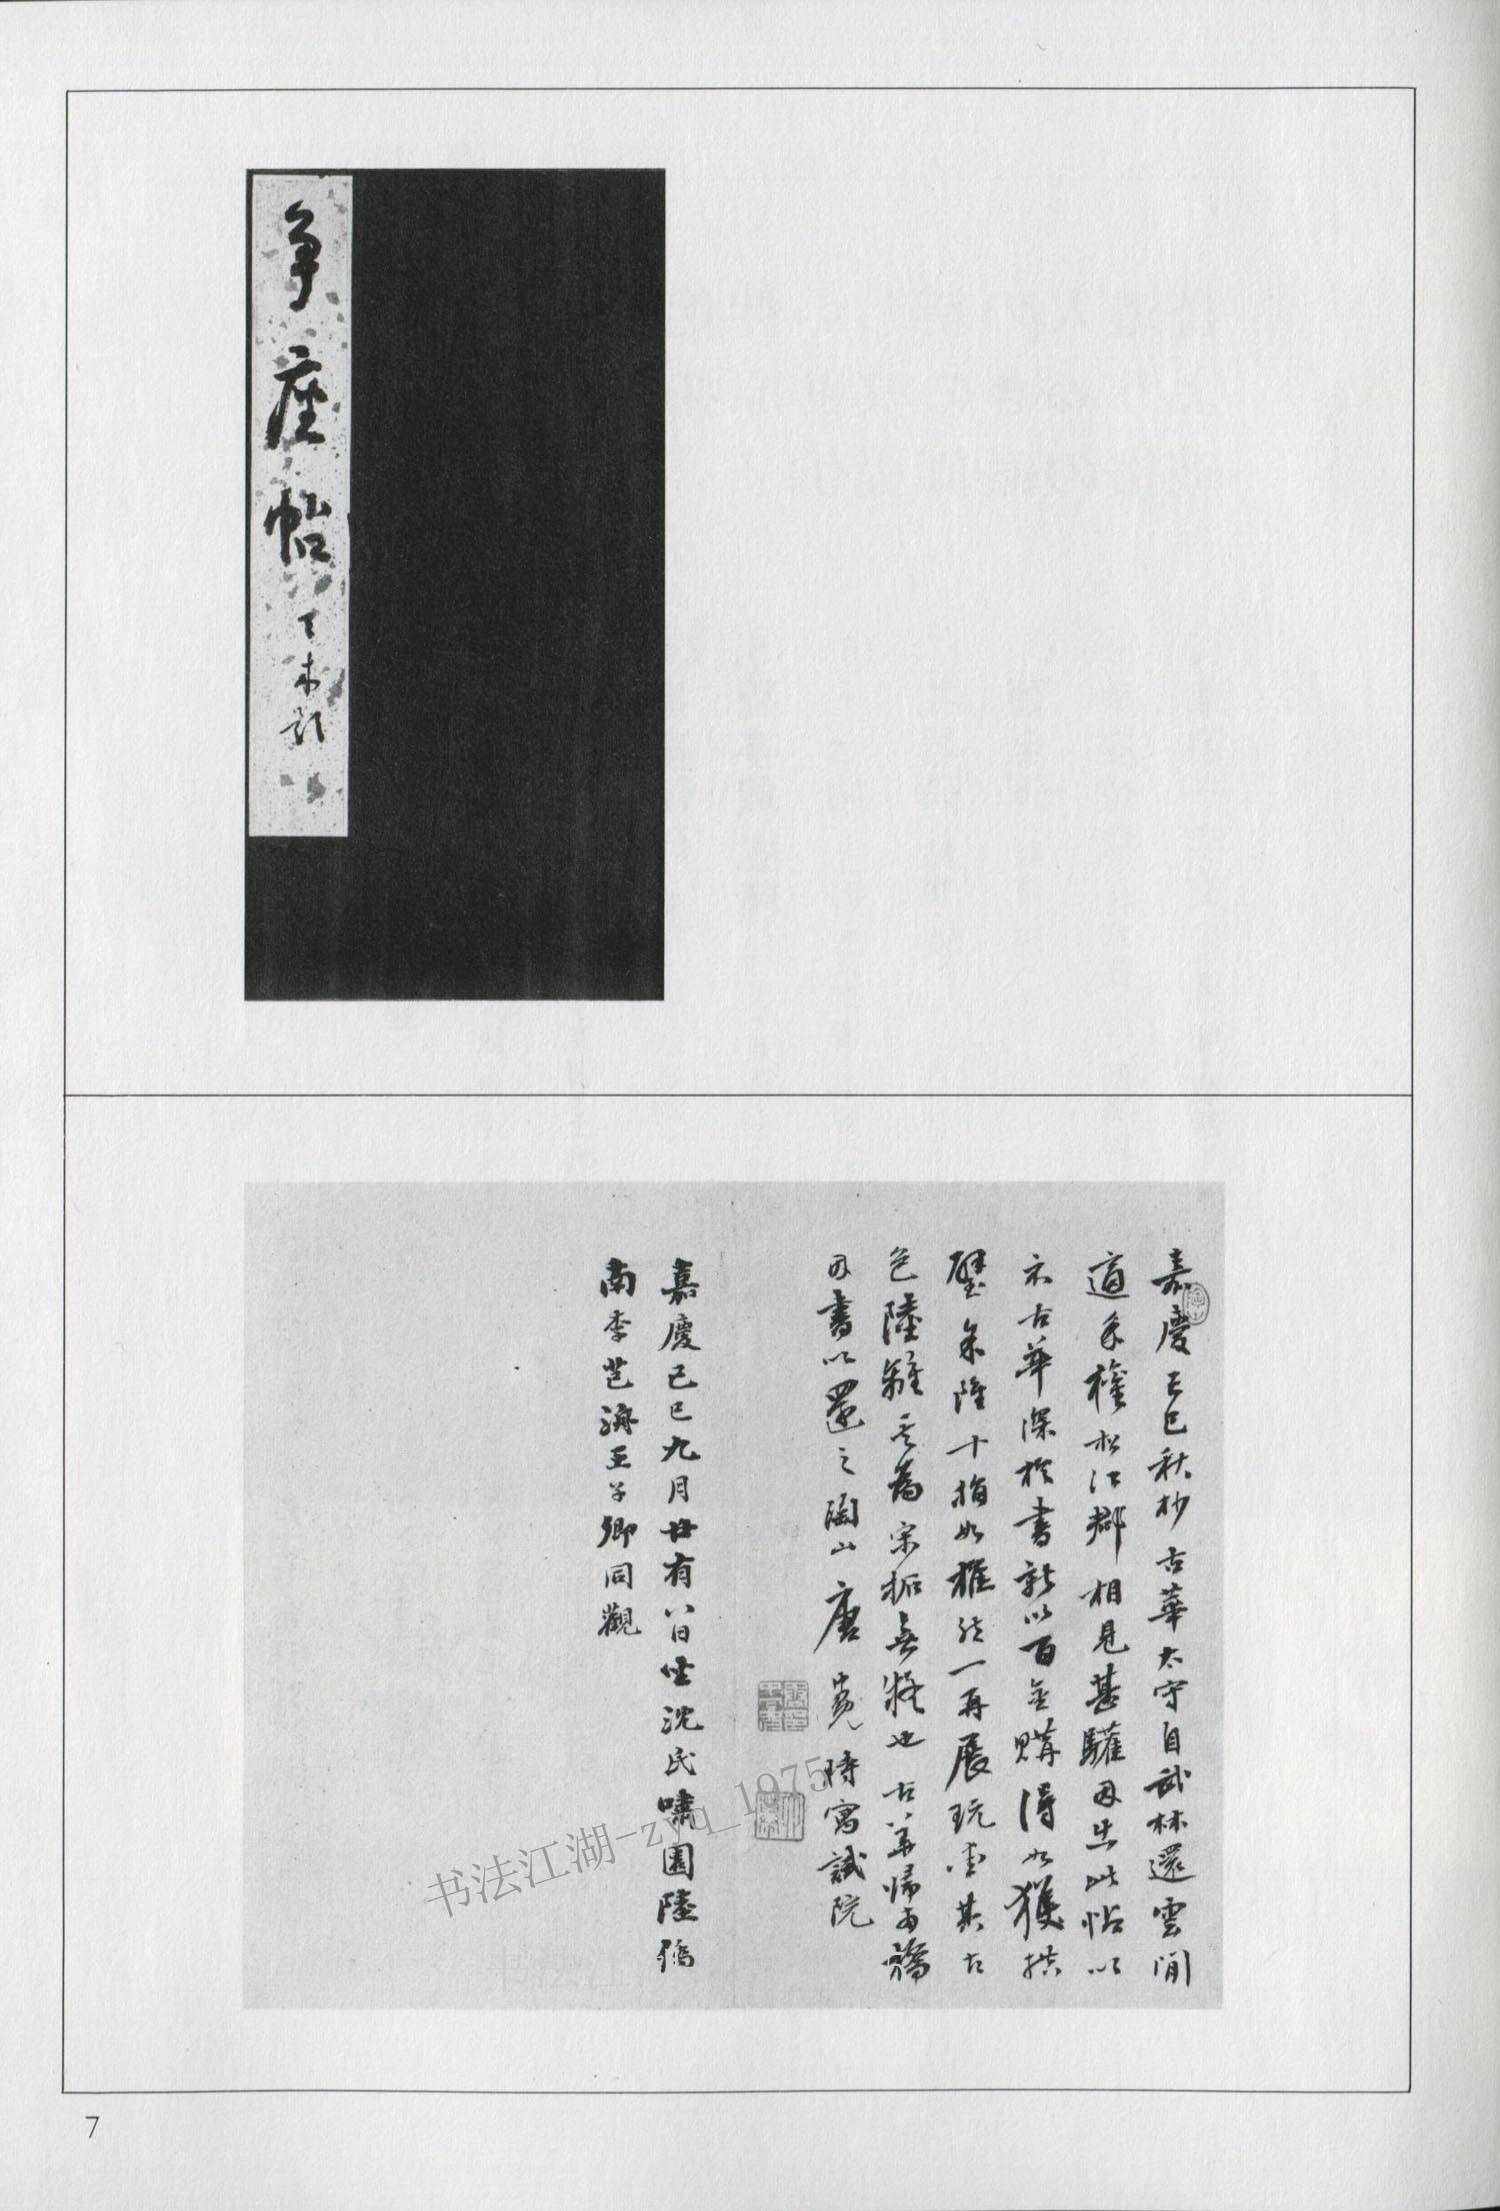 争座帖
嘉慶己巳秋杪古華太守自武林還雲間
道余權松江郡相見甚驩因出此帖以
示古華深於書訣以百金購得如獲拱
璧余雖十指如椎然一再展玩愛其古
色陸離其為宋拓無疑也古華歸
因書以還之陶山唐冕時寓試院
嘉慶己巳九月廿有八日坐沈氏嘯園陸
南李芑王子卿同觀
书法江湖-zyq_1975
7